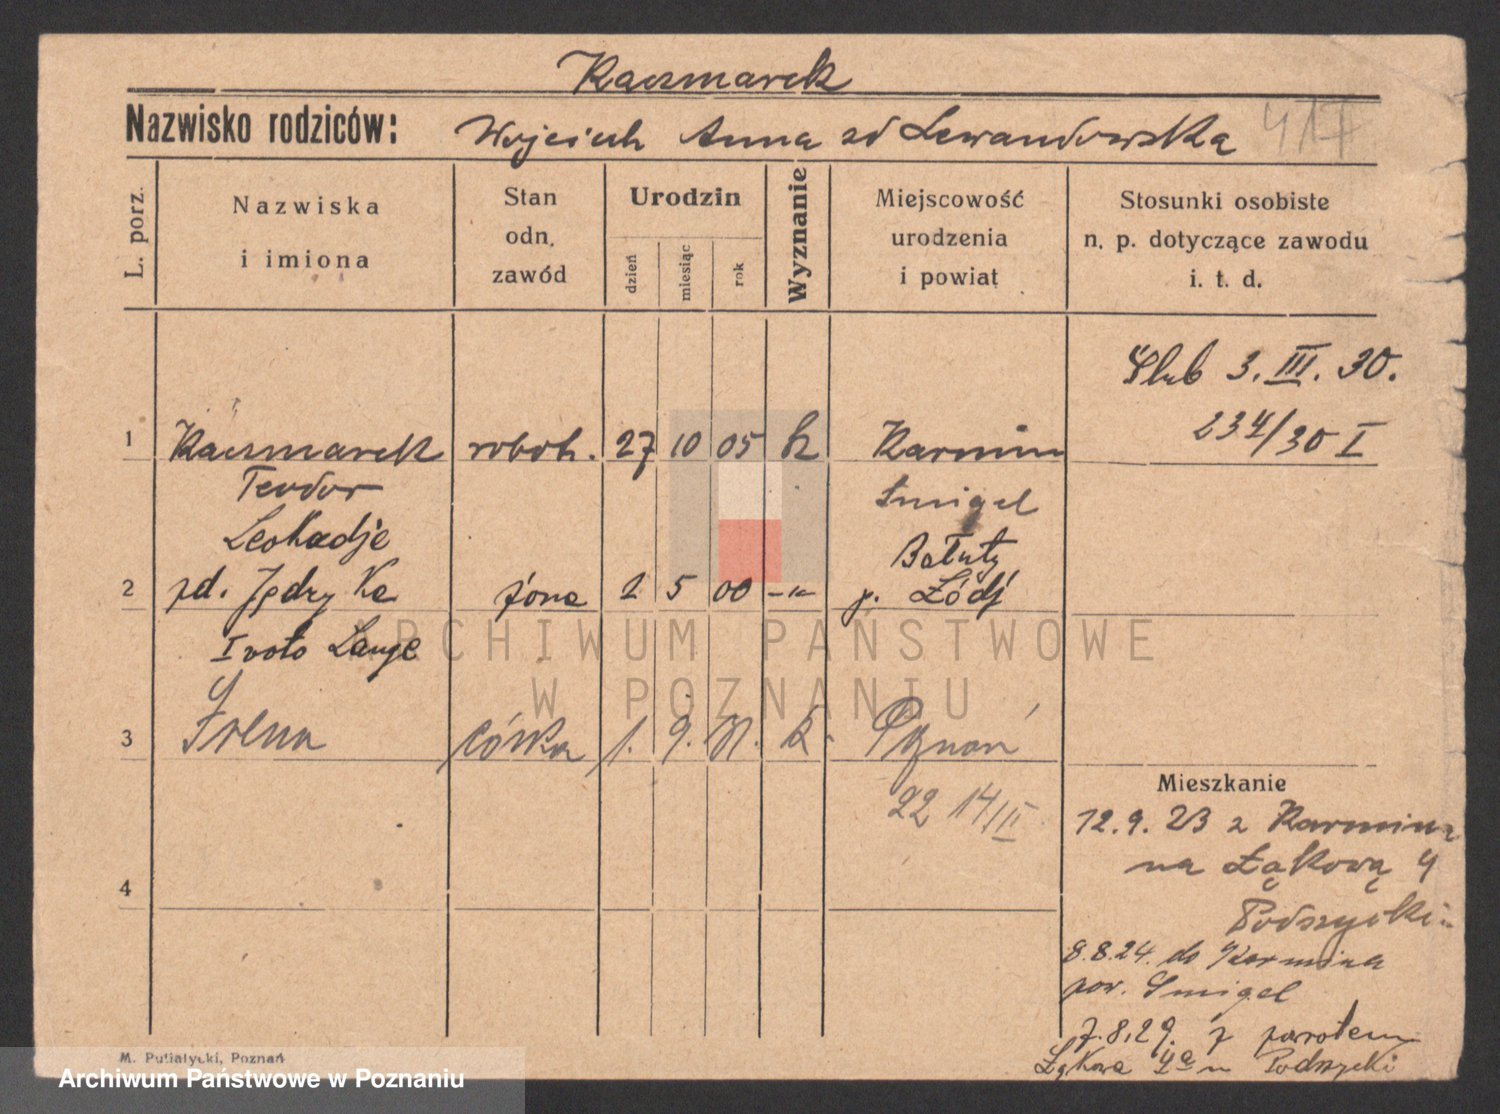 Kaczmarek
Nazwisko rodziców: Wojciech Anna zd Lewandowska 417
L. porz.
Nazwiska
i imiona
Stan
odn.
zawód
Urodzin
dzień
miesiąc
rok
Wyznanie
Miejscowość
urodzenia
i powiat
Stosunki osobiste
n. p. dotyczące zawodu
i. t. d.
Ślub 3. III. 30.
234/30 I
1 Kaczmarek robotn. 27 10 05 k Karmin
Teodor Śmigel
Leokadje Bałuty
2 zd. żona 2 5 00 —"— p. Łódź
I voto Lange
3 Irena córka 1. 9. 31. k. Poznań
22 14/II
4
Mieszkanie
12.9.23 z Karmina
na Łąkową 4
Podrzycki
8.8.24. do Karmina
pow. Śmigel
7.8.29. z powrotem
Łąkowa 4a u Podrzycki
M. Putiatycki, Poznań
ARCHIWUM PAŃSTWOWE
W POZNANIU
Archiwum Państwowe w Poznaniu